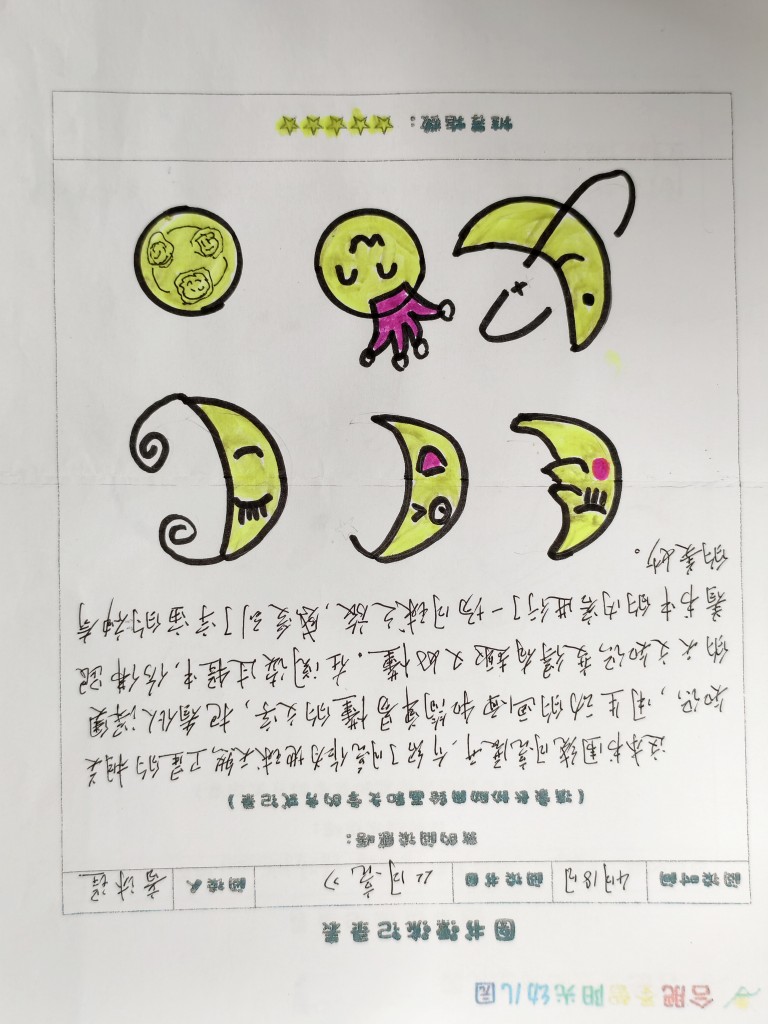 合肥 阳光幼儿园
图书漂流记录表
阅读时间 4月18日 阅读书目 《月亮》 阅读人
我的阅读感悟：
（请家长协助用绘画和文字的方式记录）
这本书围绕月亮展开，介绍了月亮作为地球天然卫星的相关
知识，用生动的画面和简单易懂的文字，把看似深奥
的天文知识变得有趣又好懂。在阅读过程中，仿佛跟
着书中的内容进行了一场月球之旅，感受到了宇宙的神奇
的美妙。
推荐指数：☆☆☆☆☆